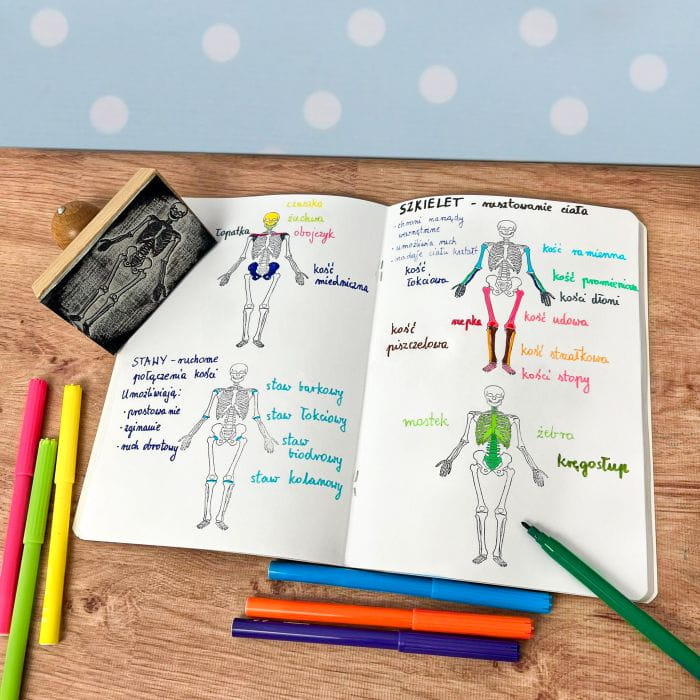 czaszka
żuchwa
łopatka
obojczyk
kość
miedniczna
STAWY - ruchome
połączenia kości
Umożliwiają:
• prostowanie
• zginanie
• ruch obrotowy
staw barkowy
staw łokciowy
staw
biodrowy
staw kolanowy
SZKIELET - rusztowanie ciała
- chroni narządy
wewnętrzne
- umożliwia ruch
- nadaje ciału kształt
kość
łokciowa
kość ramienna
kość promieniowa
kości dłoni
rzepka
kość udowa
kość
piszczelowa
kość strzałkowa
kości stopy
mostek
żebra
kręgosłup